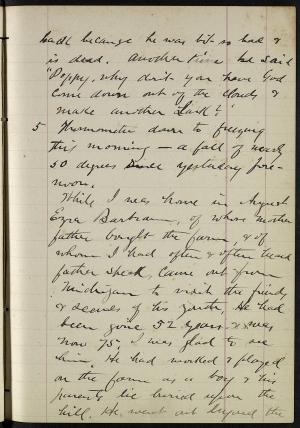 because he was bit so bad &
is dead. Another time he said
"Poppy, why don't you have God
come down out of the clouds &
make another Lark?"
5 Thermometer down to freezing
this morning — a fall of nearly
50 degrees since yesterday fore-
noon.
While I was home in August
Ezra Bartram, of whose mother
father bought the farm, & of
whom I had often & often heard
father speak, came out from
Michigan to visit the friends
& scenes of his youth. He had
been gone 52 years & was
now 75. I was glad to see
him. He had worked & played
on the farm as a boy & his
parents lie buried upon the
hill. He went out beyond the